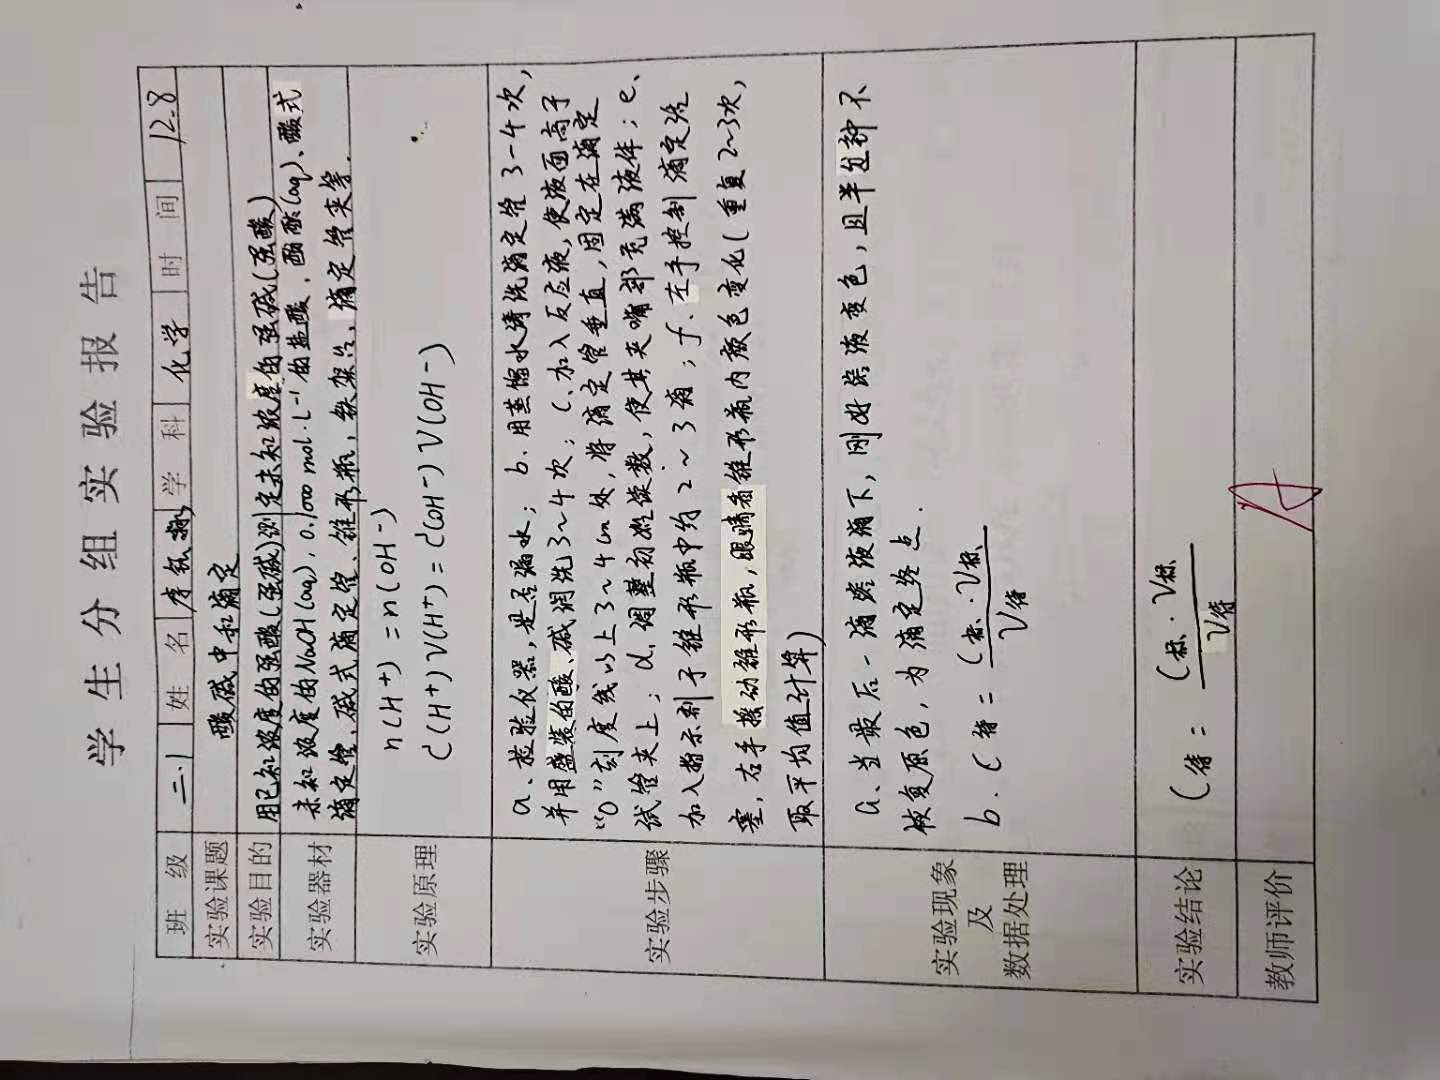 学生分组实验报告
班级 二.1 姓名 学科 化学 时间 12.8
实验课题 酸碱中和滴定
实验目的 用已知浓度的强酸(强碱)测定未知浓度的强碱(强酸)
实验器材 未知浓度的NaOH(aq), 0.1000 mol·L⁻¹的盐酸, 酚酞(aq)、酸式
滴定管、碱式滴定管、锥形瓶, 铁架台, 滴定管夹等.
实验原理 n(H⁺) = n(OH-)
C(H⁺)V(H⁺) = C(OH-)V(OH-)
实验步骤 a、检验仪器,是否漏水; b. 用蒸馏水清洗滴定管3-4次,
并用盛装的酸、碱润洗3~4次; c、加入反应液,使液面高于
“0”刻度线以上3~4cm处, 将滴定管垂直,固定在滴定
试管夹上; d. 调整初始读数, 使其尖嘴部充满液体; e、
加入指示剂于锥形瓶中约2~3滴; f、左手控制滴定活
塞, 右手摇动锥形瓶, 眼睛看锥形瓶内颜色变化(重复2~3次,
取平均值计算)
实验现象及数据处理 a、当最后一滴溶液滴下, 刚好溶液变色, 且半分钟不
恢复原色, 为滴定终点.
b. C待 = C标·V标/V待
实验结论 C待 = C标·V标/V待
教师评价 A